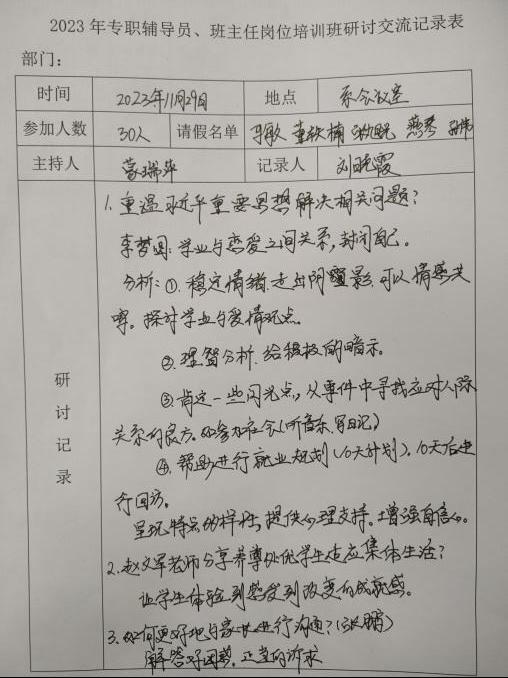 2023年专职辅导员、班主任岗位培训班研讨交流记录表
部门：
时间 2023年11月29日 地点 系会议室
参加人数 30人 请假名单 燕琴
主持人 蒙瑞萍 记录人 刘晓霞
研讨记录
1.重温 重要思想解决相关问题？
李梦园：学业与恋爱之间关系，封闭自己。
分析：①.稳定情绪.走出阴影.可以情感共
鸣。探讨学业与爱情观点.
②.理智分析.给积极的暗示。
③.肯定一些闪光点，从事件中寻找应对人际
关系的良方。如参加社会（听音乐、写日记）
④.帮助进行就业规划（10天计划），10天后进
行回访。
呈现特长的样性，提供心理支持。增强自信心。
2.赵文军老师分享养尊处优学生适应集体生活？
让学生体验到感受到改变的成就感。
3.如何更好地与家长进行沟通？（张鹏）
解答好困惑，正当的诉求